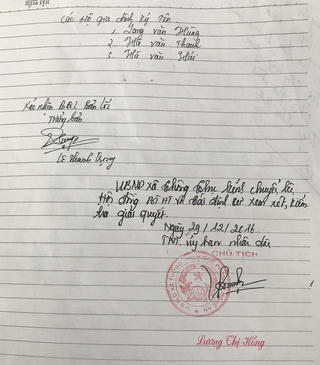 Các hộ gia đình ký tên
1, Lang văn Hùng
2. Hà văn Thanh
3 Hà văn Hải
Xác nhận BQL bản
Trưởng bản
Lê Thanh Trọng
UBND xã Thông Thụ kính chuyển lên
Hội đồng BT HT và tái định cư xem xét, kiểm
tra giải quyết.
Ngày 29/12/2016
TM. ủy ban nhân dân
CHỦ TỊCH
Lương Thị Hồng